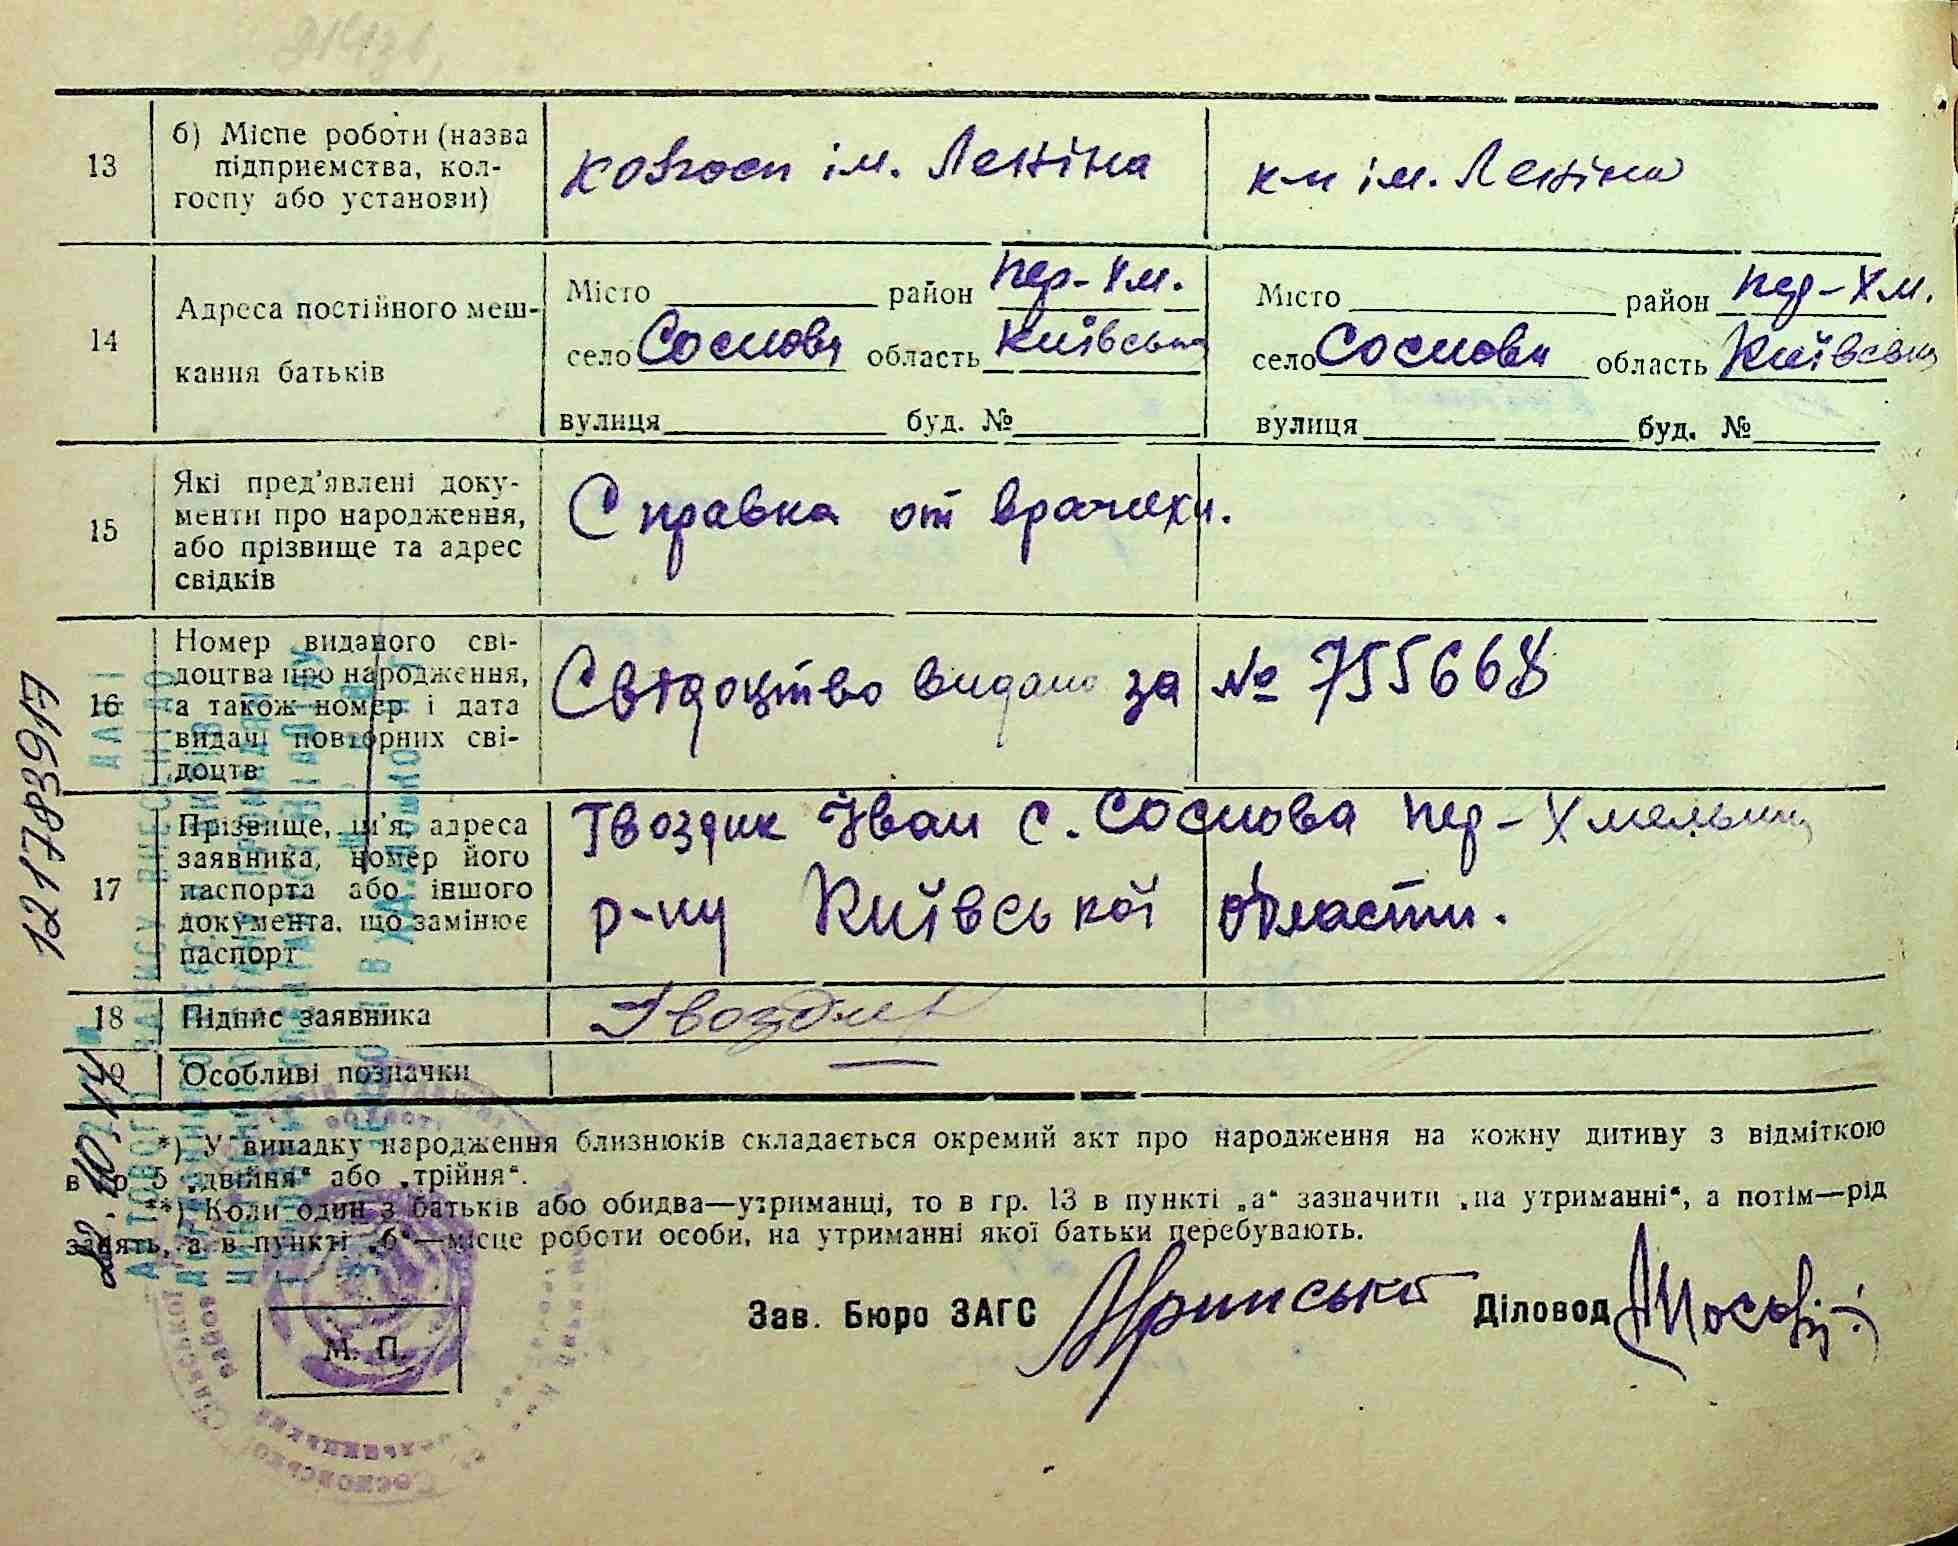 13
б) Місце роботи (назва
підприємства, кол-
госпу або установи)
колгосп ім. Леніна
к-п ім. Леніна
14
Адреса постійного меш-
кання батьків
Місто район Пер-Хм.
село Соснова область Київська
вулиця буд. №
Місто район Пер-Хм.
село Соснова область Київська
вулиця буд. №
15
Які пред'явлені доку-
менти про народження,
або прізвище та адрес
свідків
Справка от врачихи.
16
Номер виданого сві-
доцтва про народження,
а також номер і дата
видачі повторних сві-
доцтв
Свідоцтво видано за № 755668
17
Прізвище, ім'я, адреса
заявника, номер його
паспорта або іншого
документа, що замінює
паспорт
Гвоздик Іван с. Соснова Пер-Хмельниц
р-ну Київської області.
18
Підпис заявника
Гвоздик
19
Особливі позначки
*) У випадку народження близнюків складається окремий акт про народження на кожну дитину з відміткою
в гр 5 „двійня“ або „трійня“.
**) Коли один з батьків або обидва—утриманці, то в гр. 13 в пункті „а“ зазначити „на утриманні“, а потім—рід
занять, а в пункті „б“—місце роботи особи, на утриманні якої батьки перебувають.
Зав. Бюро ЗАГС
Діловод
М. П.
12178 3917